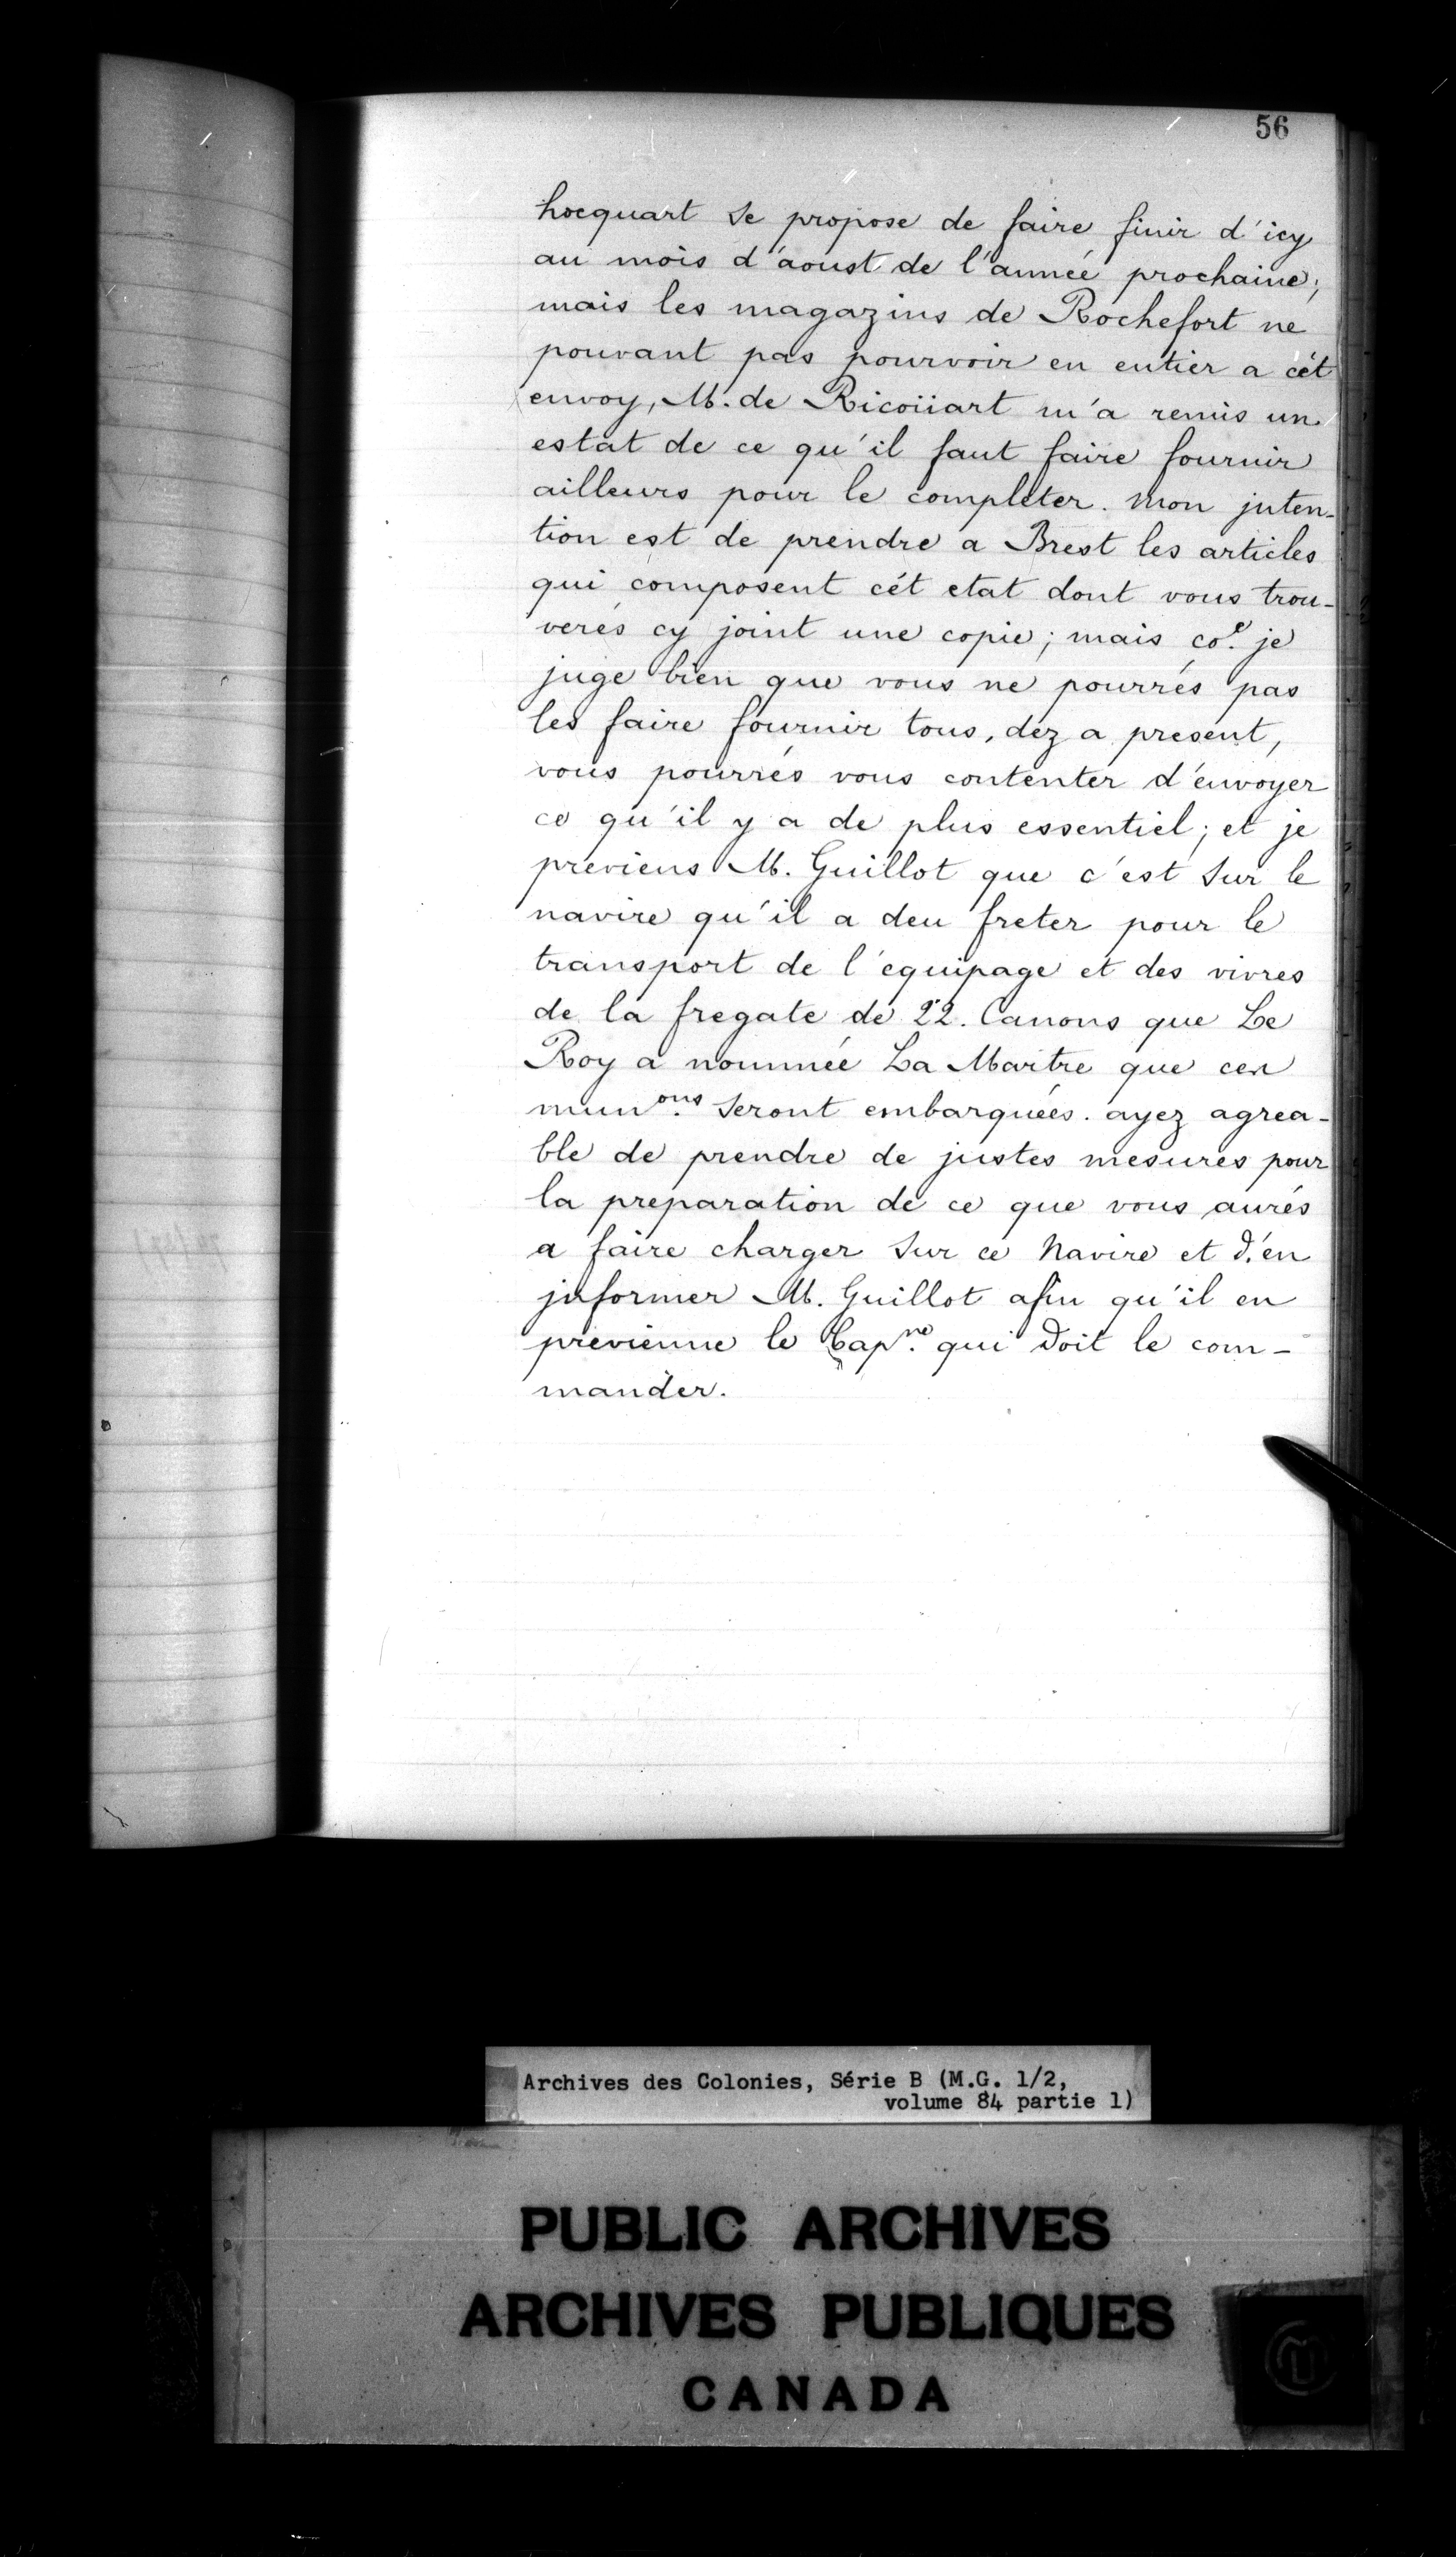 56
hocquart se propose de faire finir d'icy
au mois d'aoust de l'année prochaine;
mais les magazins de Rochefort ne
pouvant pas pourvoir en entier a cét
envoy, M. de Ricoüart m'a remis un
estat de ce qu'il faut faire fournir
ailleurs pour le completer. Mon jnten-
tion est de prendre a Brest les articles
qui composent cét etat dont vous trou-
verés cy joint une copie; mais co.e je
juge bien que vous ne pourrés pas
les faire fournir tous, dez a present,
vous pourrés vous contenter d'envoyer
ce qu'il y a de plus essentiel; et je
previens M. Guillot que c'est sur le
navire qu'il a deu freter pour le
transport de l'equipage et des vivres
de la fregate de 22. Canons que Le
Roy a nommée La Martre que ces
mun.ons seront embarquées. ayez agrea-
ble de prendre de justes mesures pour
la preparation de ce que vous aurés
a faire charger sur ce Navire et d'en
jnformer M. Guillot afin qu'il en
previenne le Cap.ne qui doit le com-
mander.
Archives des Colonies, Série B (M.G. 1/2,
volume 84 partie 1)
PUBLIC ARCHIVES
ARCHIVES PUBLIQUES
CANADA